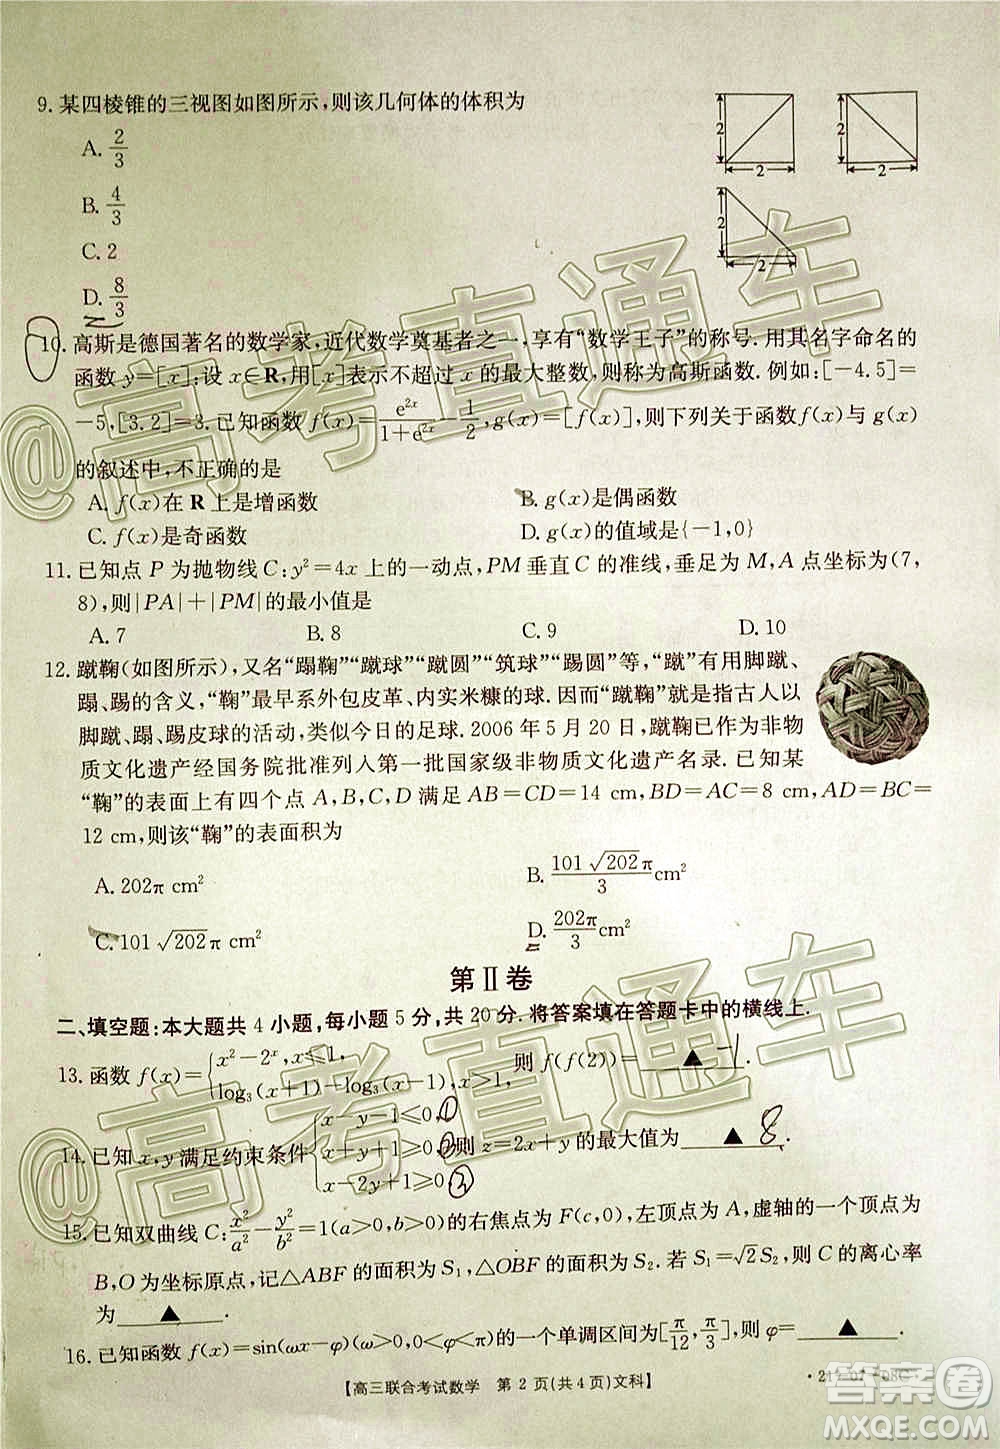 9. 某四棱锥的三视图如图所示,则该几何体的体积为
A. 2/3
B. 4/3
C. 2
D. 8/3
2 2 2 2
2 2
10. 高斯是德国著名的数学家,近代数学奠基者之一,享有“数学王子”的称号. 用其名字命名的
函数 y=[x]:设 x∈R,用[x]表示不超过 x 的最大整数,则称为高斯函数. 例如:[-4.5]=
-5,[3.2]=3. 已知函数 f(x)=e^{2x}/(1+e^{2x})-1/2,g(x)=[f(x)],则下列关于函数 f(x)与 g(x)
的叙述中,不正确的是
A. f(x)在 R 上是增函数 B. g(x)是偶函数
C. f(x)是奇函数 D. g(x)的值域是{-1,0}
11. 已知点 P 为抛物线 C:y²=4x 上的一动点,PM 垂直 C 的准线,垂足为 M,A 点坐标为(7,
8),则|PA|+|PM|的最小值是
A. 7 B. 8 C. 9 D. 10
12. 蹴鞠(如图所示),又名“蹋鞠”“蹴球”“蹴圆”“筑球”“踢圆”等,“蹴”有用脚蹴、
蹋、踢的含义,“鞠”最早系外包皮革、内实米糠的球. 因而“蹴鞠”就是指古人以
脚蹴、蹋、踢皮球的活动,类似今日的足球. 2006 年 5 月 20 日,蹴鞠已作为非物
质文化遗产经国务院批准列入第一批国家级非物质文化遗产名录. 已知某
“鞠”的表面上有四个点 A,B,C,D 满足 AB=CD=14 cm,BD=AC=8 cm,AD=BC=
12 cm,则该“鞠”的表面积为
A. 202π cm² B. 101√202π/3 cm²
C. 101√202π cm² D. 202π/3 cm²
第Ⅱ卷
二、填空题:本大题共 4 小题,每小题 5 分,共 20 分. 将答案填在答题卡中的横线上.
13. 函数 f(x)={x²-2^x,x≤1, log₃(x+1)-log₃(x-1),x>1, 则 f(f(2))= ▲ -1.
14. 已知 x,y 满足约束条件{x-y-1≤0,① x+y+1≥0,② x-2y+1≥0,③ 则 z=2x+y 的最大值为 ▲ 8.
15. 已知双曲线 C:x²/a²-y²/b²=1(a>0,b>0)的右焦点为 F(c,0),左顶点为 A,虚轴的一个顶点为
B,O 为坐标原点,记△ABF 的面积为 S₁,△OBF 的面积为 S₂. 若 S₁=√2S₂,则 C 的离心率
为 ▲ .
16. 已知函数 f(x)=sin(ωx-φ)(ω>0,0<φ<π)的一个单调区间为[π/12,π/3],则 φ= ▲ .
【高三联合考试数学 第 2 页(共 4 页)文科】
@高考直通车
@高考直通车
答案圈
MXQE.COM